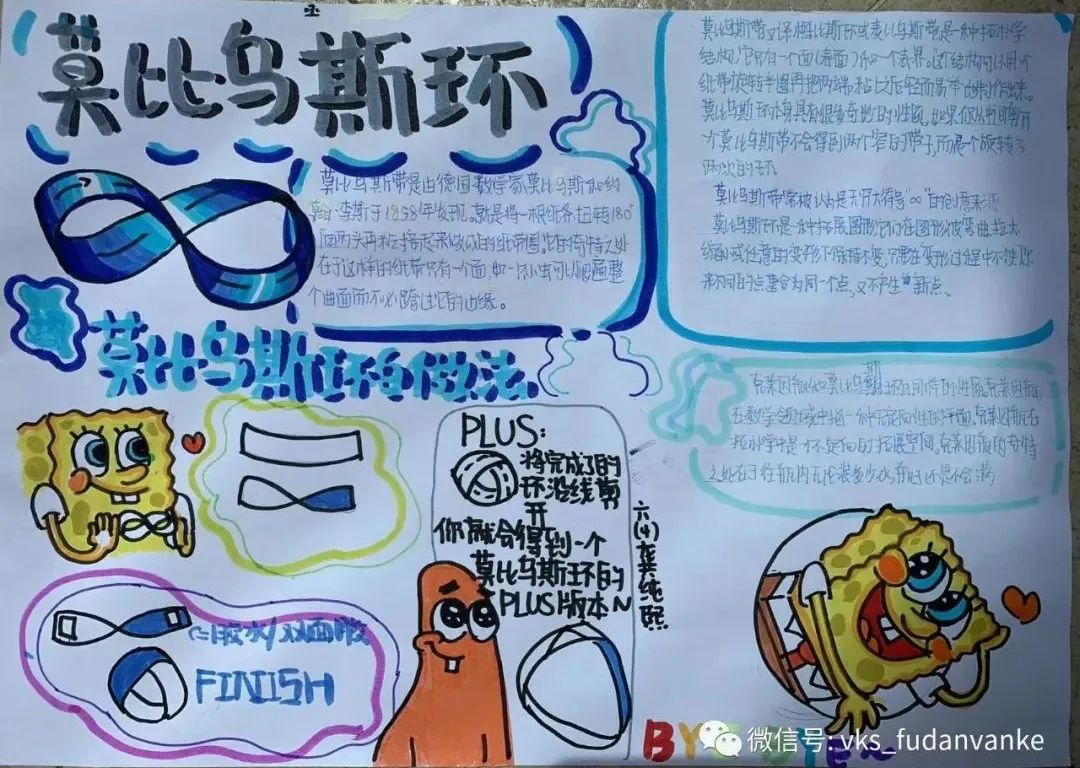 莫比乌斯环
莫比乌斯带是由德国数学家莫比乌斯和约
翰·李斯于1858年发现。就是将一根纸条扭转180°
后两头再粘接起来做成的纸带圈。它的奇特之处
在于这样的纸带只有一个面,如一只小虫可以爬遍整
个曲面而不必跨过它的边缘。
莫比乌斯带又译梅比斯环或麦比乌斯带是一种拓扑学
结构,它只有一个面(表面)和一个边界。这个结构可以用一个
纸带旋转半圈再把两端粘上之后轻而易举地制作出来。
莫比乌斯环本身具有很多奇妙的性质,如果你从中间剪开
一个莫比乌斯带不会得到两个窄的带子,而是一个旋转了
两次的环
莫比乌斯带常被认为是无穷大符号"∞"的创意来源
莫比乌斯环是一种拓展图形,它们在图形被弯曲拉大
缩小或任意的变形下保持不变,只要在变形过程中不使原
来不同的点重合为同一个点,又不产生新点。
莫比乌斯环的做法
克莱因瓶和莫比乌斯环有同样的性质,克莱因瓶
在数学领域中指一种无定向性的平面,克莱因瓶在
拓扑学中是一个不定向的拓展空间。克莱因瓶的奇特
之处在于往瓶内无论装多少水,瓶近还是不会满
PLUS:
将完成了的
环沿线剪
开
你就会得到一个
莫比乌斯环的
PLUS版本~
六(4)龚纯熙
胶水/双面胶
FINISH
BY
微信号: vks_fudanvanke